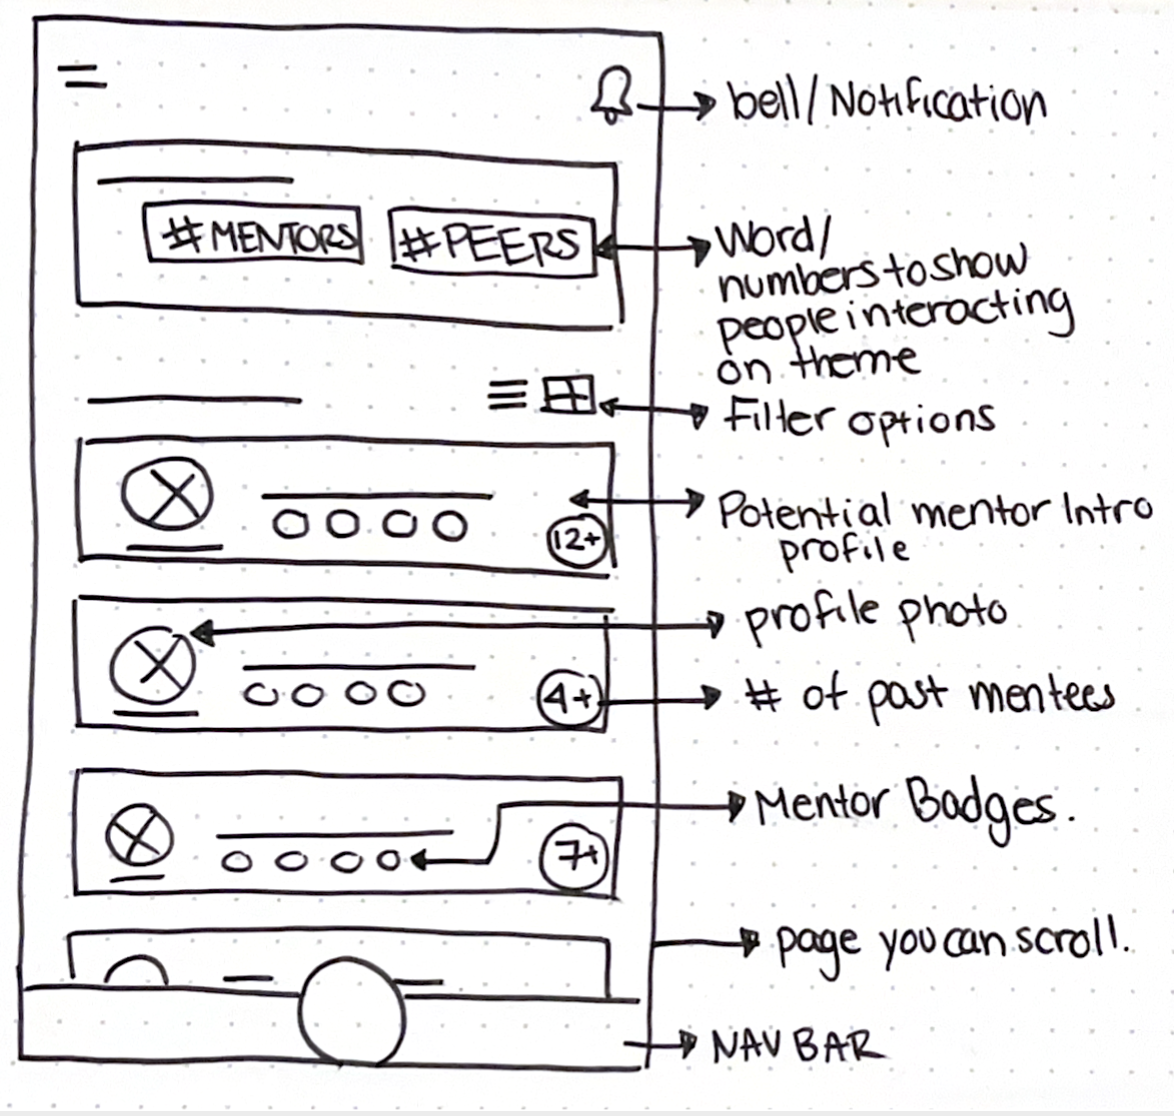 bell/Notification
#MENTORS #PEERS
Word/
numbers to show
people interacting
on theme
Filter options
Potential mentor Intro
profile
12+
profile photo
4+
# of past mentees
Mentor Badges.
7+
page you can scroll.
NAV BAR